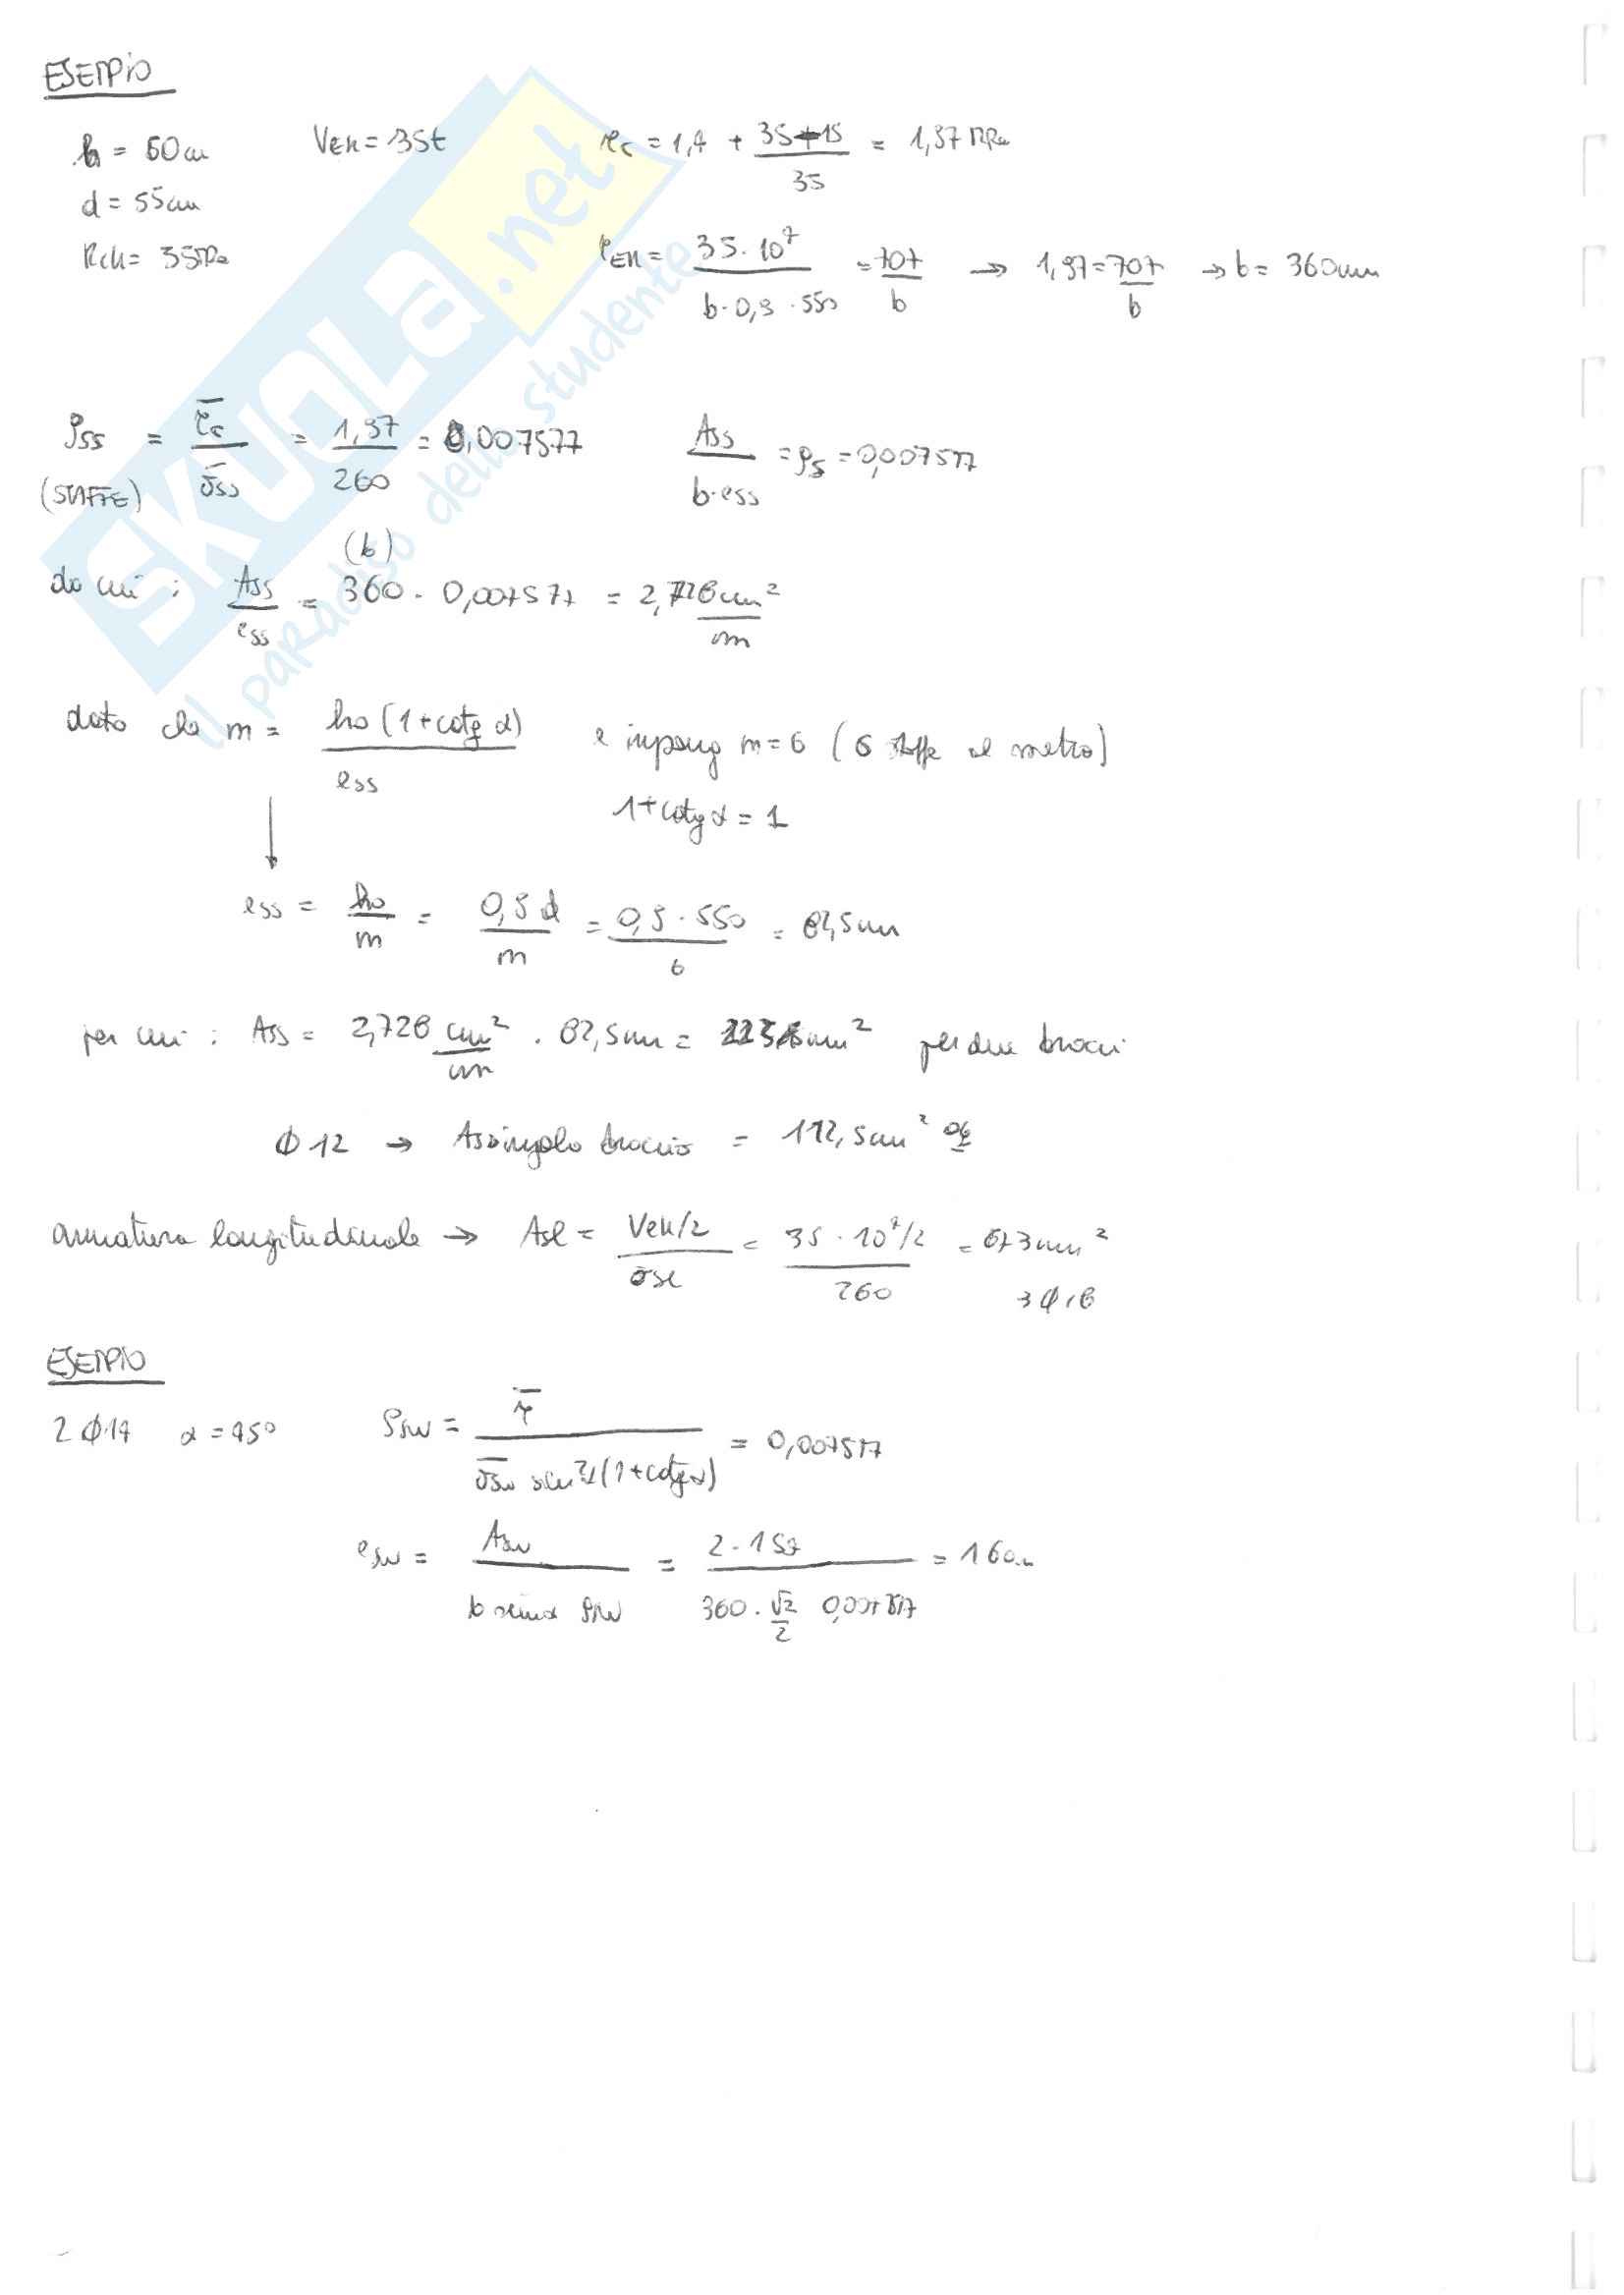 ESEMPIO
h = 60cm VEK = 35t τc = 1,4 + 35-15/35 = 1,97 MPa
d = 55cm
Rck = 35MPa τEK = 35·10⁴/b·0,9·550 = 707/b → 1,97 = 707/b → b = 360mm
ρss = τ̄c/σ̄ss = 1,97/260 = 0,007577 Ass/b·ess = ρs = 0,007577
(STAFFE)
(b)
da cui : Ass/ess = 360 · 0,007577 = 2,728 cm²/m
dato che m = ho(1+cotg α)/ess e impong m = 6 (6 staffe al metro)
1+cotg α = 1
ess = ho/m = 0,9 d/m = 0,9·550/6 = 82,5mm
per cui : Ass = 2,728 cm²/cm · 82,5mm = 225mm² per due bracci
φ12 → As singolo braccio = 112,5mm² ok
armatura longitudinale → Asl = VEK/2/σsl = 35·10⁴/2/260 = 673mm²
3φ18
ESEMPIO
2φ14 α = 45° ρsw = τ̄/σ̄sw sen²α(1+cotg α) = 0,007577
esw = Asw/b senα ρsw = 2·154/360·√2/2 0,007577 = 160mm
SKUOLA.net
il paradiso dello studente